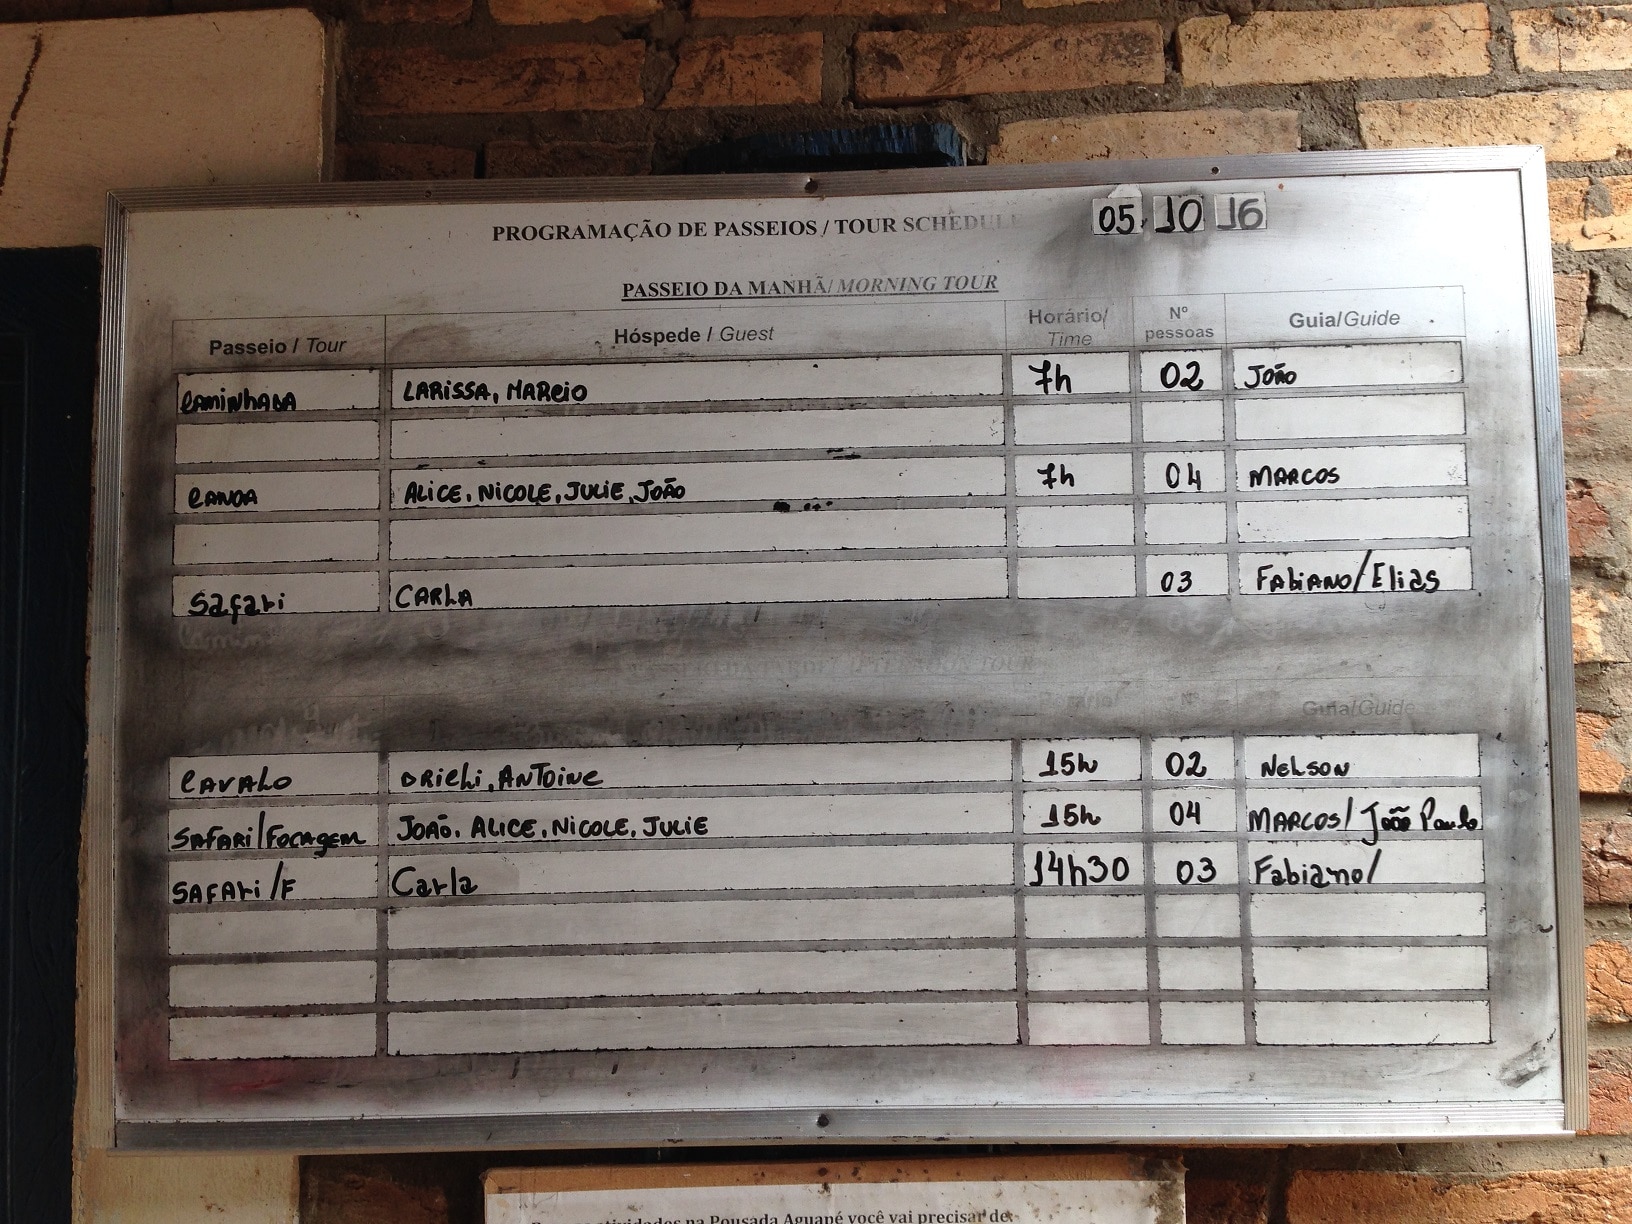 PROGRAMAÇÃO DE PASSEIOS / TOUR SCHEDULE 05.10 16
PASSEIO DA MANHÃ/ MORNING TOUR
Passeio / Tour Hóspede / Guest Horário/ Time Nº pessoas Guia/Guide
CAMINHADA LARISSA, MARCIO 7h 02 JOÃO
CANOA ALICE, NICOLE, JULIE, JOÃO 7h 04 MARCOS
Safari CARLA 03 FABIANO/Elias
TOUR
Nº Guia/Guide
CAVALO ORIELI, ANTOINE 15h 02 NELSON
SAFARI/FOCAGEM JOÃO, ALICE, NICOLE, JULIE 15h 04 MARCOS/ João Paulo
SAFARI/F Carla 14h30 03 Fabiano/
atividades na Pousada Aguapé você vai precisar de: